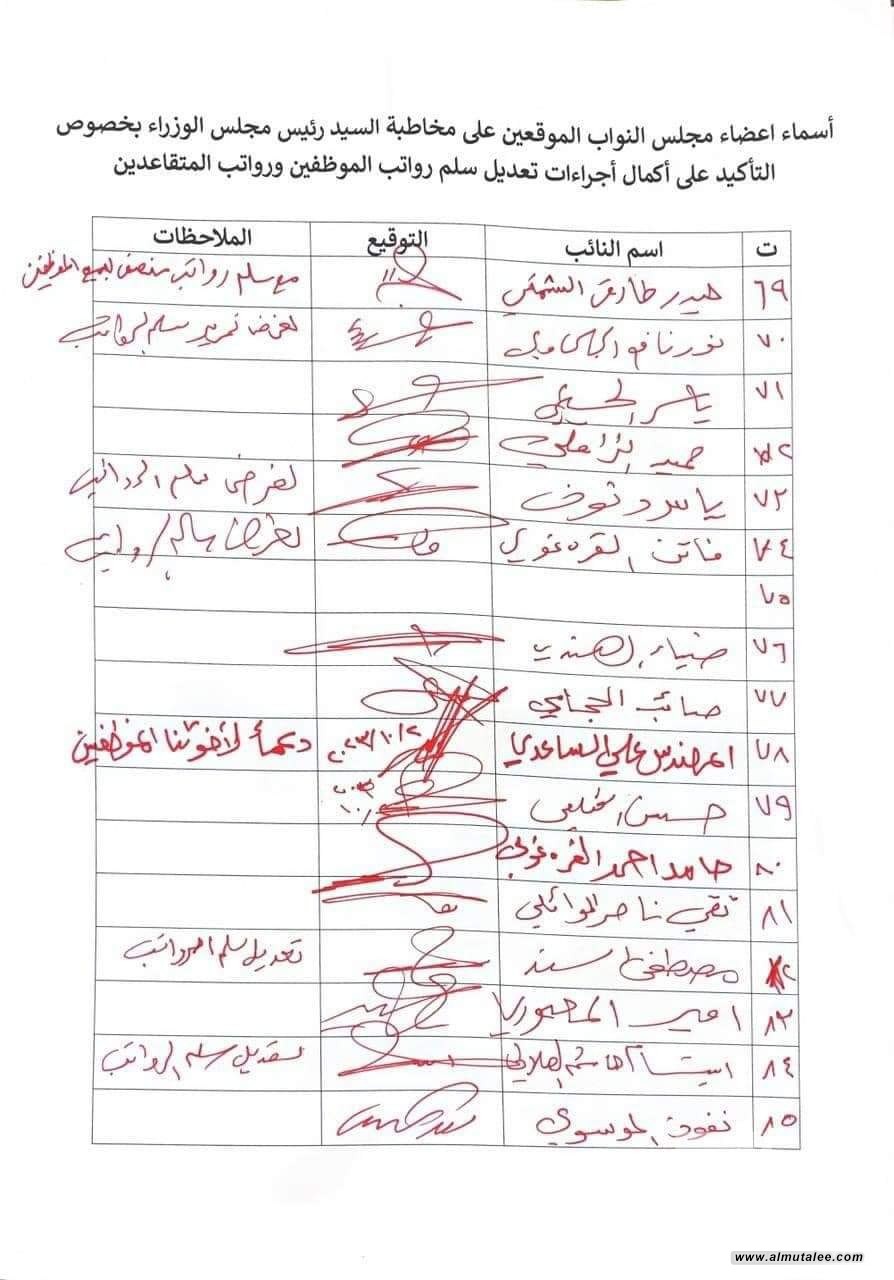 أسماء اعضاء مجلس النواب الموقعين على مخاطبة السيد رئيس مجلس الوزراء بخصوص
التأكيد على أكمال أجراءات تعديل سلم رواتب الموظفين ورواتب المتقاعدين
ت اسم النائب التوقيع الملاحظات
٦٩ حيدر طارق الشمخي مع سلم رواتب منصف لجميع الموظفين
٧٠ نور نافع لغرض تمرير سلم الرواتب
٧١ ياسر الحسيني
٧٢ حميد الزاملي
٧٣ ياسر وتوت لغرض سلم الرواتب
٧٤ فاتن القره غولي لغرض سلم رواتب
٧٥
٧٦ ضياء الهندي
٧٧ صائب الحجامي
٧٨ المهندس علي الساعدي ٢٠٢٣/١٠/٢ دعماً لأخوتنا الموظفين
٧٩ حسين
٨٠ حامد احمد الغره غولي
٨١ تقي ناصر الوائلي
٨٢ مصطفى سند تعديل سلم الرواتب
٨٣ امير المعموري
٨٤ ابتسام هاشم الهلالي لتعديل سلم الرواتب
٨٥ نفوذ الموسوي
www.almutalee.com